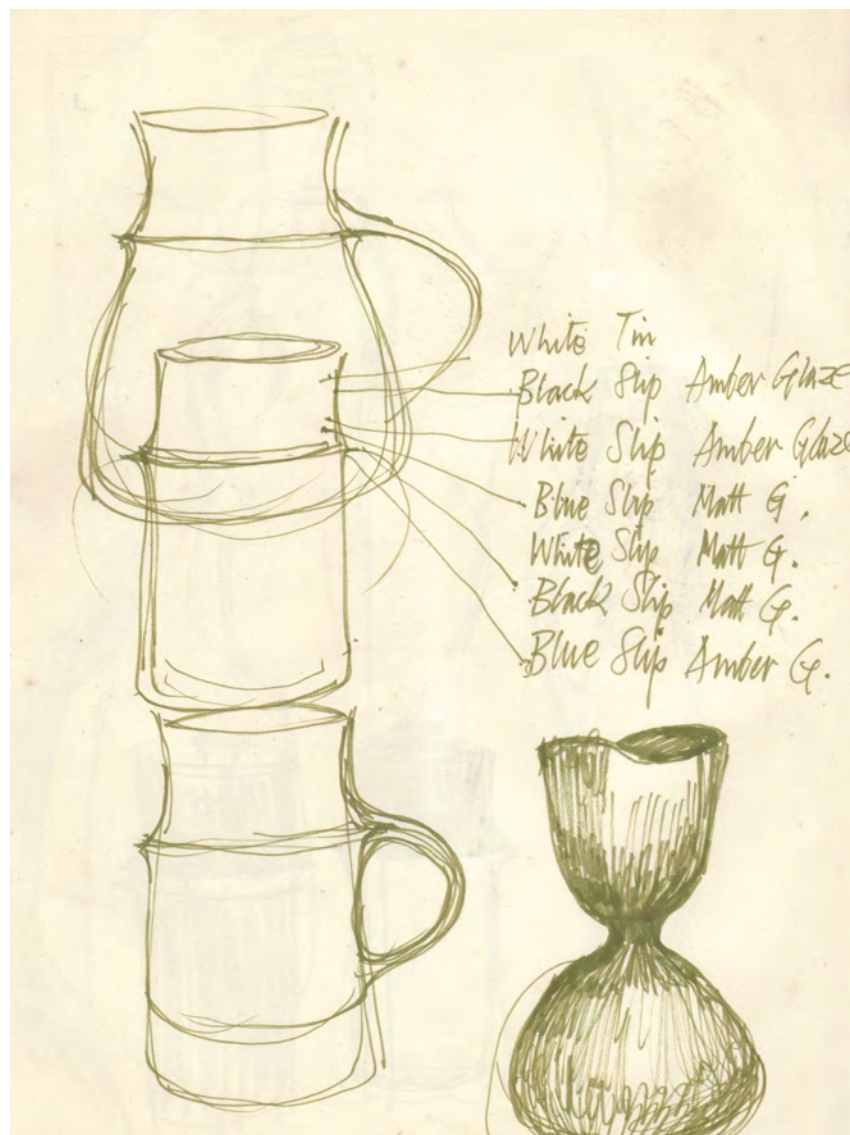 White Tin
Black Slip Amber Glaze
White Slip Amber Glaze
Blue Slip Matt G.
White Slip Matt G.
Black Slip Matt G.
Blue Slip Amber G.